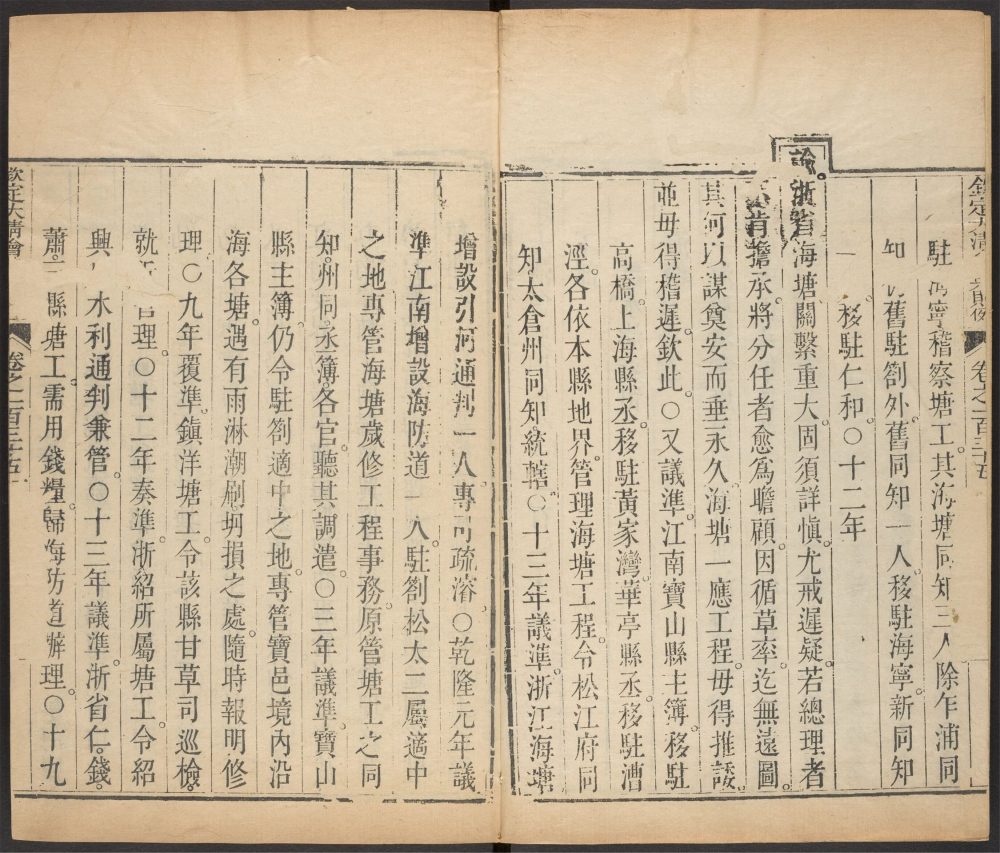 欽定大清
則例
卷之一百三十五
駐海寧稽察塘工其海塘同知三人除乍浦同
知 舊駐劄外舊同知一人移駐海寧新同知
移駐仁和〇十二年
諭浙省海塘關繫重大固須詳愼尤戒遲疑若總理者
肯擔承將分任者愈爲瞻顧因循草率迄無遠圖
其何以謀奠安而垂永久海塘一應工程毋得推諉
並毋得稽遲欽此〇又議準江南寶山縣主簿移駐
高橋上海縣丞移駐黃家灣華亭縣丞移駐漕
涇各依本縣地界管理海塘工程令松江府同
知太倉州同知統轄〇十三年議準浙江海塘
增設引河通判一人專司疏濬〇乾隆元年議
準江南增設海防道一人駐劄松太二屬適中
之地專管海塘歲修工程事務原管塘工之同
知州同丞簿各官聽其調遣〇三年議準寶山
縣主簿仍令駐劄適中之地專管寶邑境內沿
海各塘遇有雨淋潮刷坍損之處隨時報明修
理〇九年覆準鎭洋塘工令該縣甘草司巡檢
就 管理〇十二年奏準浙紹所屬塘工令紹
興 水利通判兼管〇十三年議準浙省仁錢
蕭 縣塘工需用錢糧歸海防道辦理〇十九
欽定大淸會
卷之一百三十五